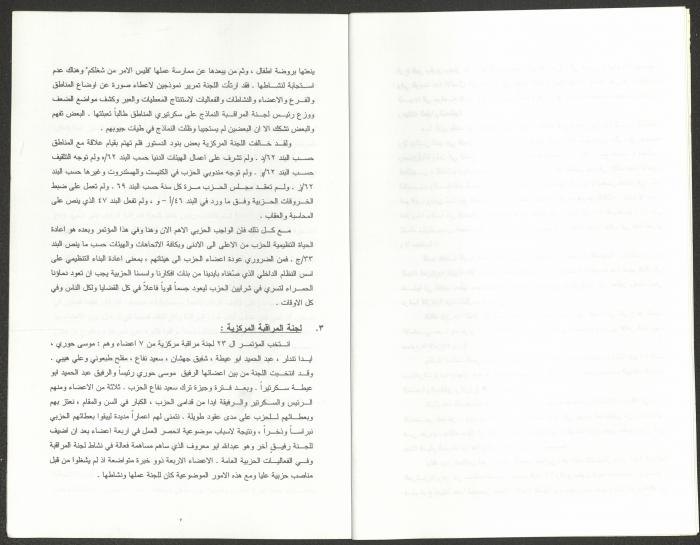 ينعتها بروضة اطفال ، وثم من يبعدها عن ممارسة عملها "فليس الامر من شغلكم" وهناك عدم
استجابة لنشاطها . فقد ارتأت اللجنة تمرير نموذجين لاعطاء صورة عن اوضاع المناطق
والفرع والاعضاء والنشاطات والفعاليات لاستنتاج المعطيات والعبر وكشف مواضع الضعف
ووزع رئيس لجنة المراقبة النماذج على سكرتيري المناطق طالباً تعبئتها . البعض تفهم
والبعض تشكك الا ان البعضين لم يستجيبا وظلت النماذج في طيات جيوبهم .
ولقد خالفت اللجنة المركزية بعض بنود الدستور فلم تهتم بقيام علاقة مع المناطق
حسب البند ٦٢/د . ولم تشرف على اعمال الهيئات الدنيا حسب البند ٦٢/ه ولم توجه التثقيف
حسب البند ٦٢/و . ولم توجه مندوبي الحزب في الكنيست والهستدروت وغيرها حسب البند
٦٢/ز . ولم تعقد مجلس الحزب مرة كل سنة حسب البند ٦٩ . ولم تعمل على ضبط
الخروقات الحزبية وفق ما ورد في البند ٤٦/أ – و ، ولم تفعل البند ٤٧ الذي ينص على
المحاسبة والعقاب .
مع كل ذلك فان الواجب الحزبي الاهم الان وهنا وفي هذا المؤتمر وبعده هو اعادة
الحياة التنظيمية للحزب من الاعلى الى الادنى وبكافة الاتجاهات والهيئات حسب ما ينص البند
٣٣/ج . فمن الضروري عودة اعضاء الحزب الى هيئاتهم ، بمعنى اعادة البناء التنظيمي على
اسس النظام الداخلي الذي صغناه بايدينا من بنات افكارنا واسسنا الحزبية يجب ان تعود دماؤنا
الحمراء لتسري في شرايين الحزب ليعود جسماً قوياً فاعلاً في كل القضايا ولكل الناس وفي
كل الاوقات .
٣. لجنة المراقبة المركزية :
انتخب المؤتمر ال ٢٣ لجنة مراقبة مركزية من ٧ اعضاء وهم : موسى حوري ،
ايدا تندلر ، عبد الحميد ابو عيطة ، شفيق جهشان ، سعيد نفاع ، مفلح طبعوني وعلي هيبي .
وقد انتخبت اللجنة من بين اعضائها الرفيق موسى حوري رئيساً والرفيق عبد الحميد ابو
عيطة سكرتيراً . وبعد فترة وجيزة ترك سعيد نفاع الحزب . ثلاثة من الاعضاء ومنهم
الرئيس والسكرتير والرفيقة ايدا من قدامى الحزب ، الكبار في السن والمقام ، نعتز بهم
وبعطائهم للحزب على مدى عقود طويلة . نتمنى لهم اعماراً مديدة ليبقوا بعطائهم الحزبي
نبراساً وذخراً ، ونتيجة لاسباب موضوعية انحصر العمل في اربعة اعضاء بعد ان اضيف
للجنة رفيق آخر وهو عبدالله ابو معروف الذي ساهم مساهمة فعالة في نشاط لجنة المراقبة
وفي الفعاليات الحزبية العامة . الاعضاء الاربعة ذوو خبرة متواضعة اذ لم يشغلوا من قبل
مناصب حزبية عليا ومع هذه الامور الموضوعية كان للجنة عملها ونشاطها .